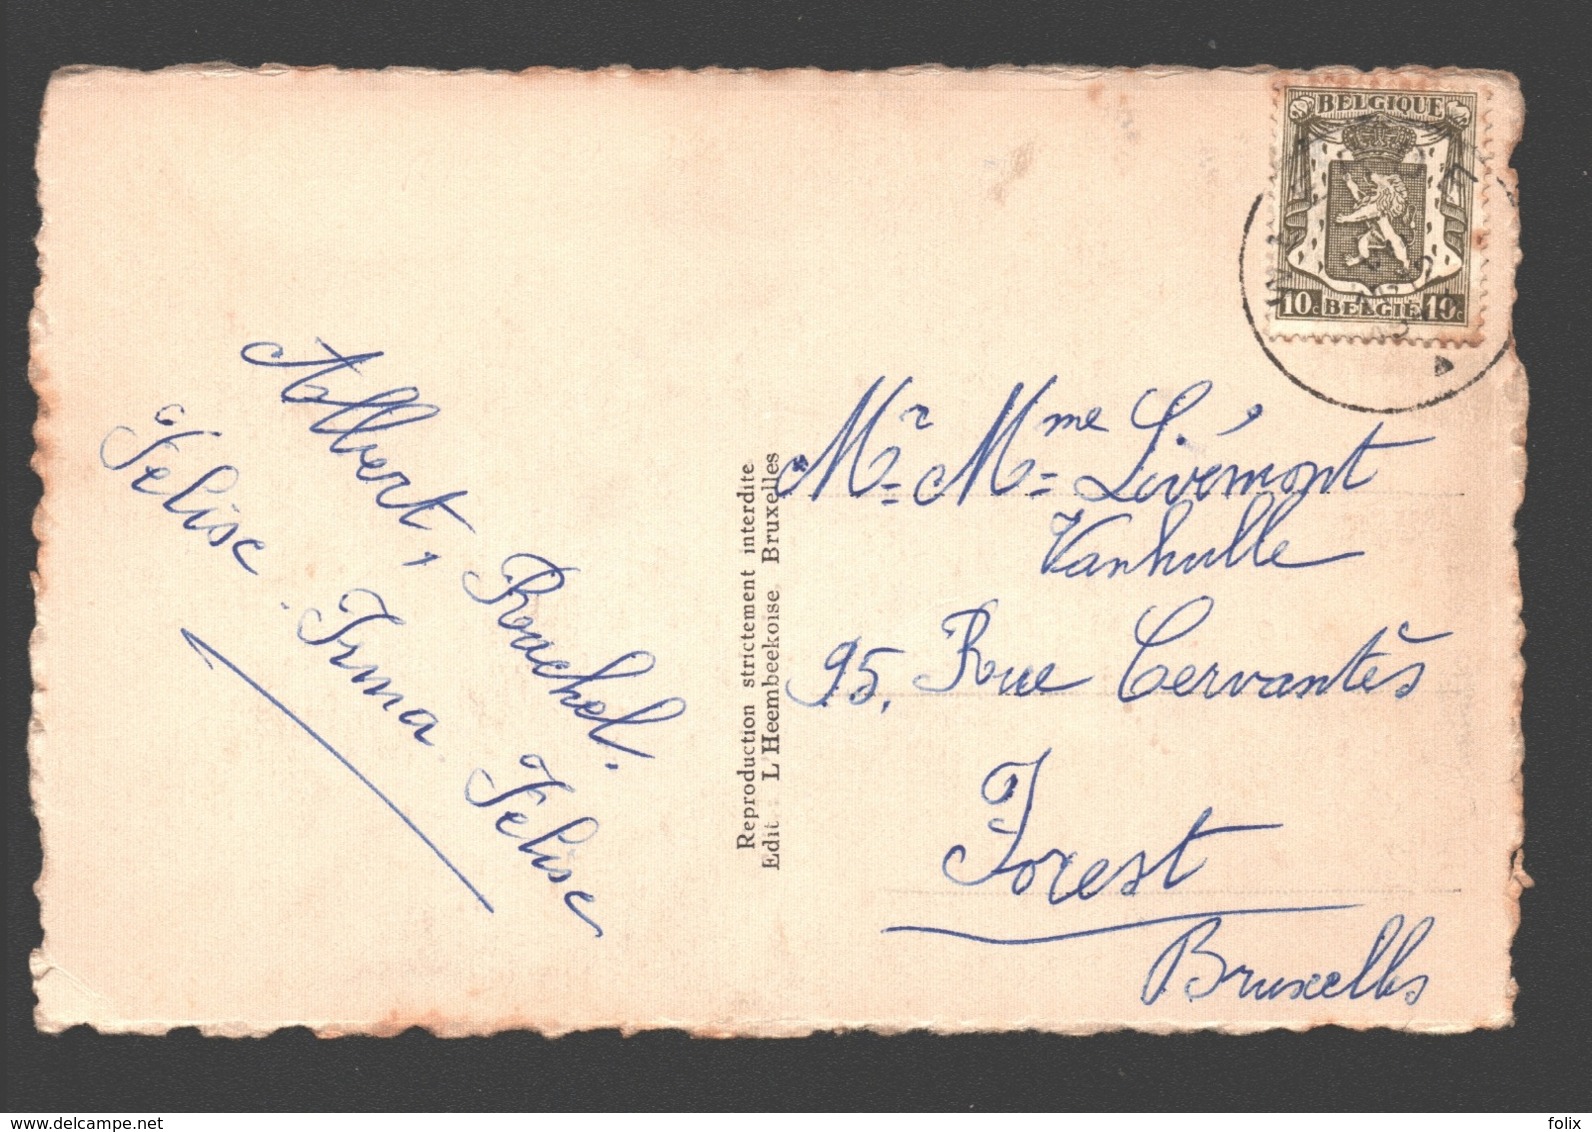 BELGIQUE
10c BELGIË 10c
Albert, Rachel.
Félise. Irma. Félise
Reproduction strictement interdite
Edit : L'Heembeekoise Bruxelles
Mr Mme Livémont
Vanhulle
95, Rue Cervantès
Forest
Bruxelles
www.delcampe.net
folix